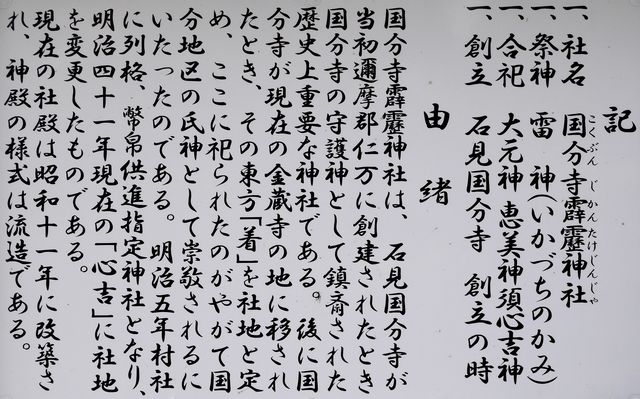 記
一、社名　国分寺霹靂神社
こくぶんじかんたけじんじゃ
一、祭神　雷　神（いかづちのかみ）
一、合祀　大元神　恵美神須心吉神
一、創立　石見国分寺　創立の時
由緒
国分寺霹靂神社は、石見国分寺が
当初邇摩郡仁万に創建されたとき
国分寺の守護神として鎮斎された
歴史上重要な神社である。後に国
分寺が現在の金蔵寺の地に移され
たとき、その東方「着」を社地と定
め、ここに祀られたのがやがて国
分地区の氏神として崇敬されるに
いたったのである。明治五年村社
に列格、幣帛供進指定神社となり、
明治四十一年現在の「心吉」に社地
を変更したものである。
現在の社殿は昭和十一年に改築さ
れ、神殿の様式は流造である。